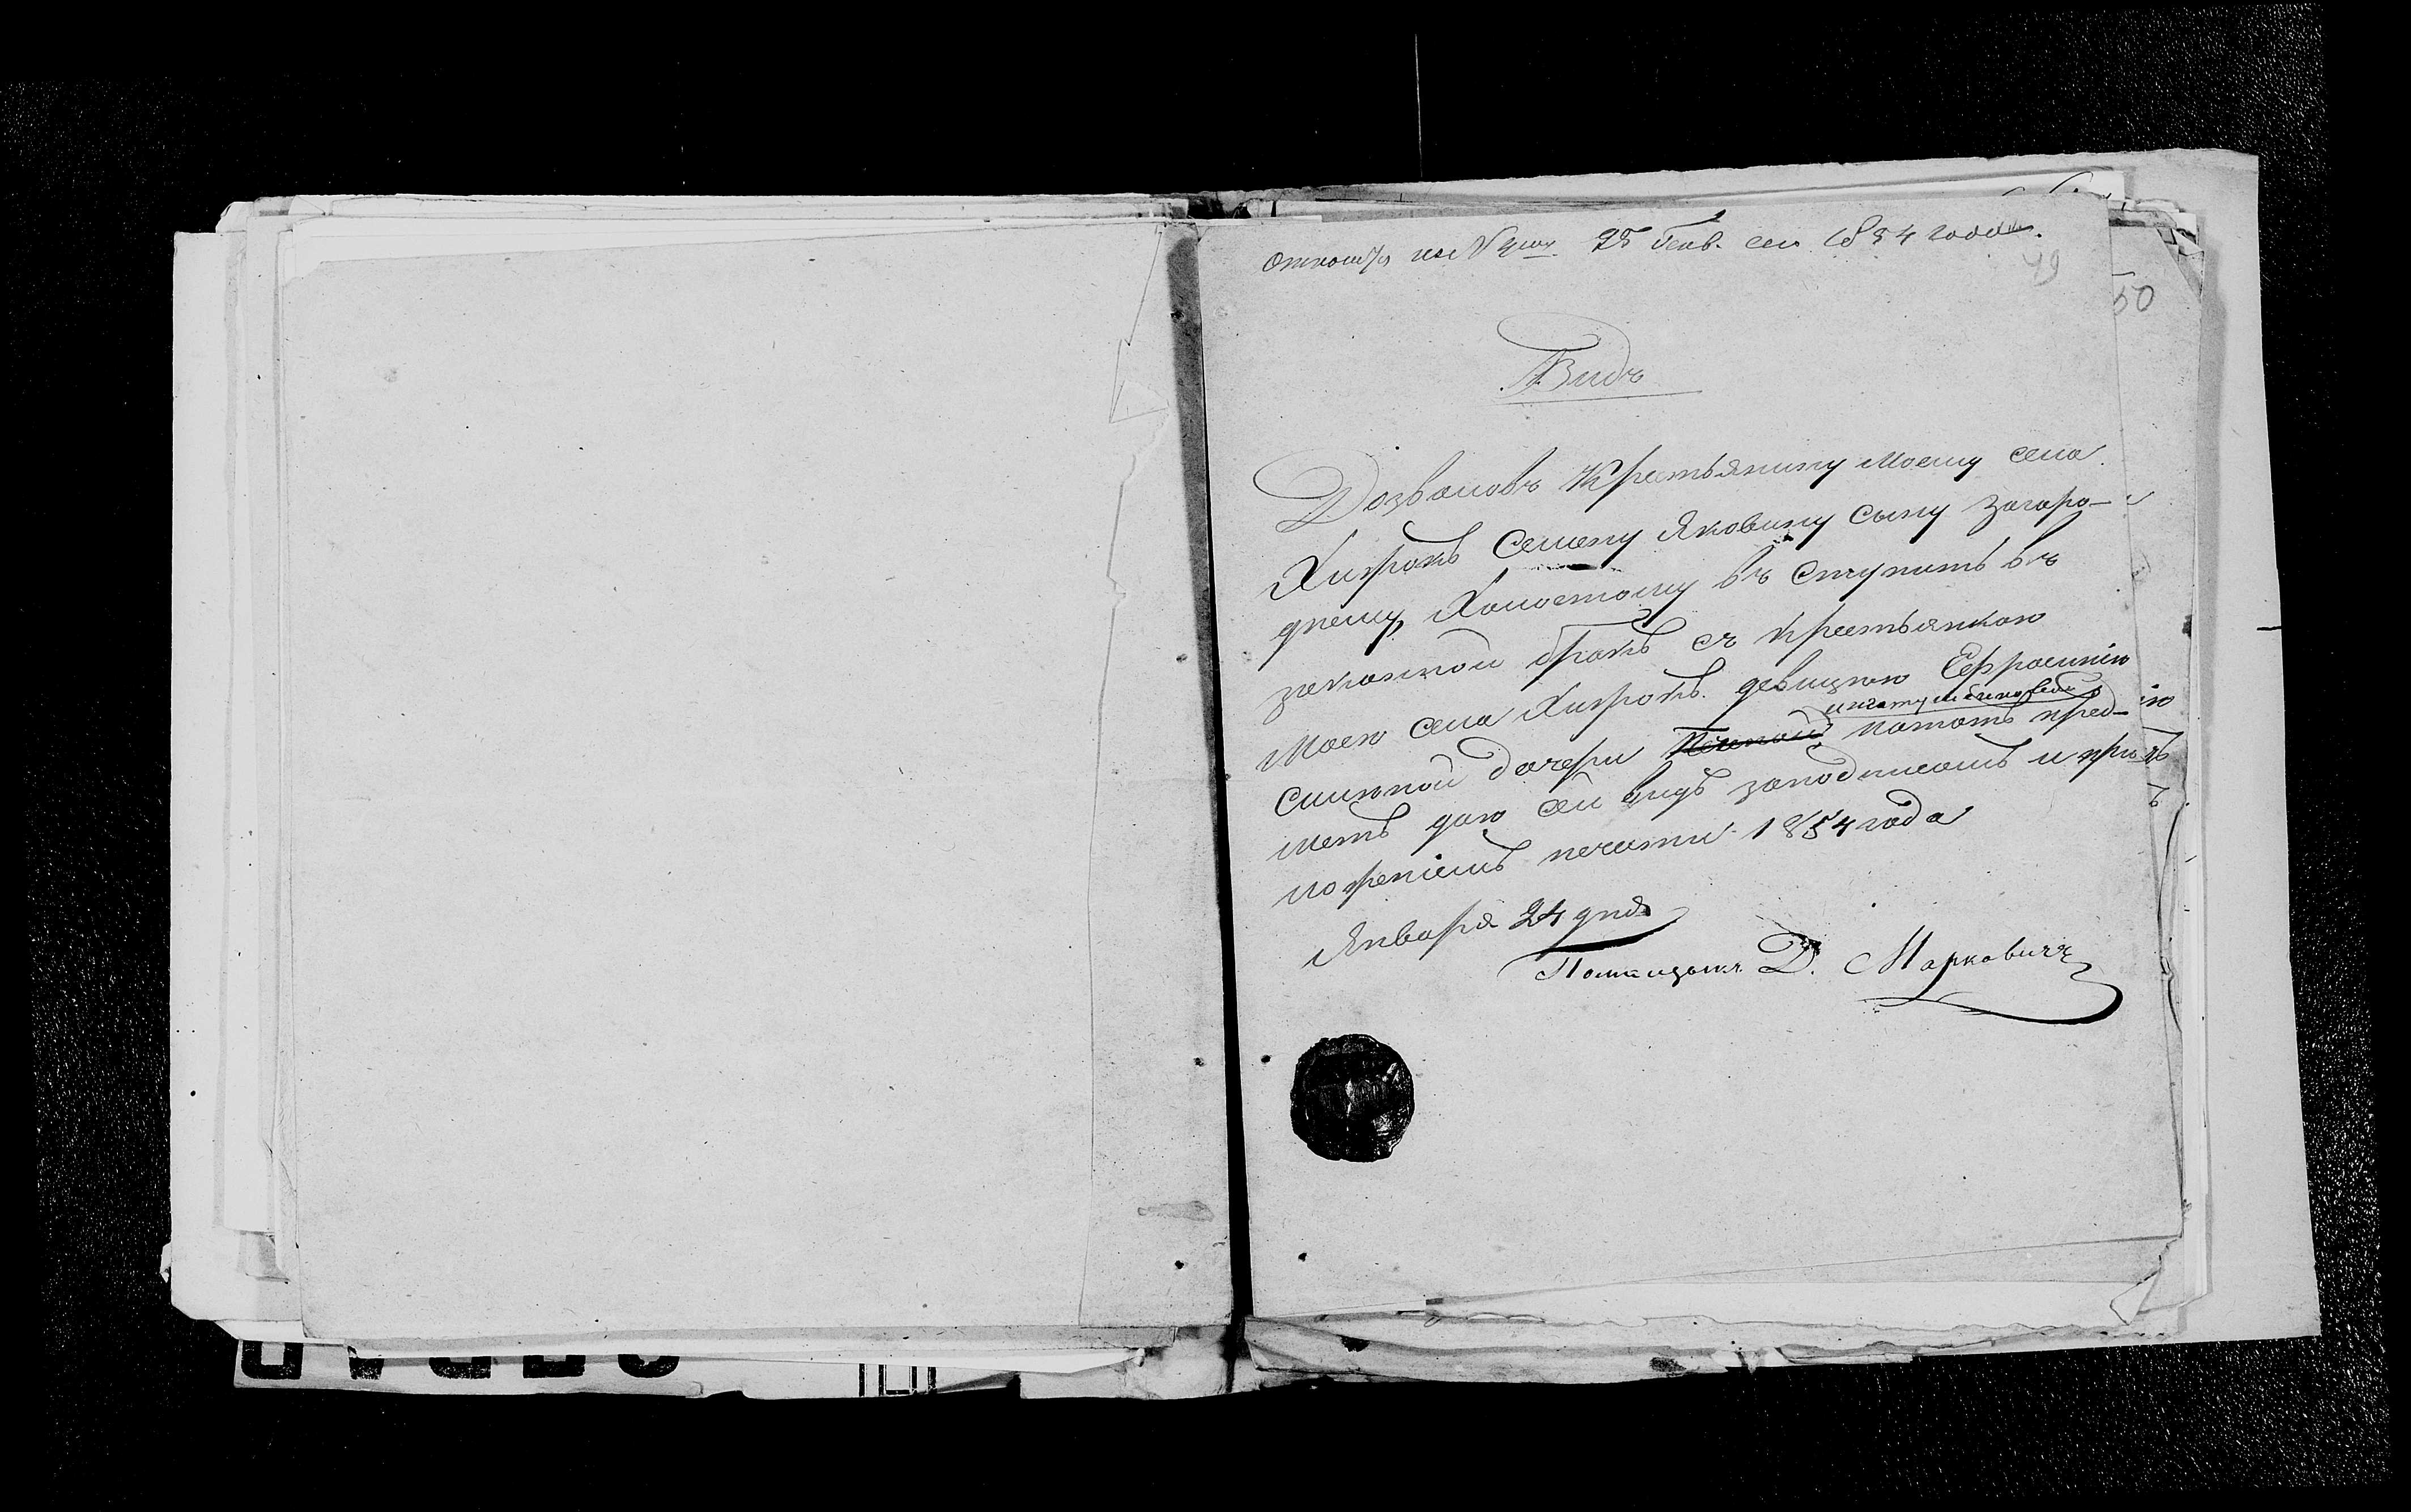 25 Генв. сего 1854 года.
49
50
Видъ
Дозволовъ Крестьянину моему села
Хитрокъ Семену Яковину сыну Загоро-
днему, Холостому въ Ступить въ
законной бракъ съ крестьянкою
моею села Хитрокъ. девицею Ефросинію
Семиной дочери Поповой, в томъ пред-
метъ даю сей видъ заподписомъ и при-
ложеніемъ печати 1854 года
Января 24 дня
Помещикъ Д. Марковичъ